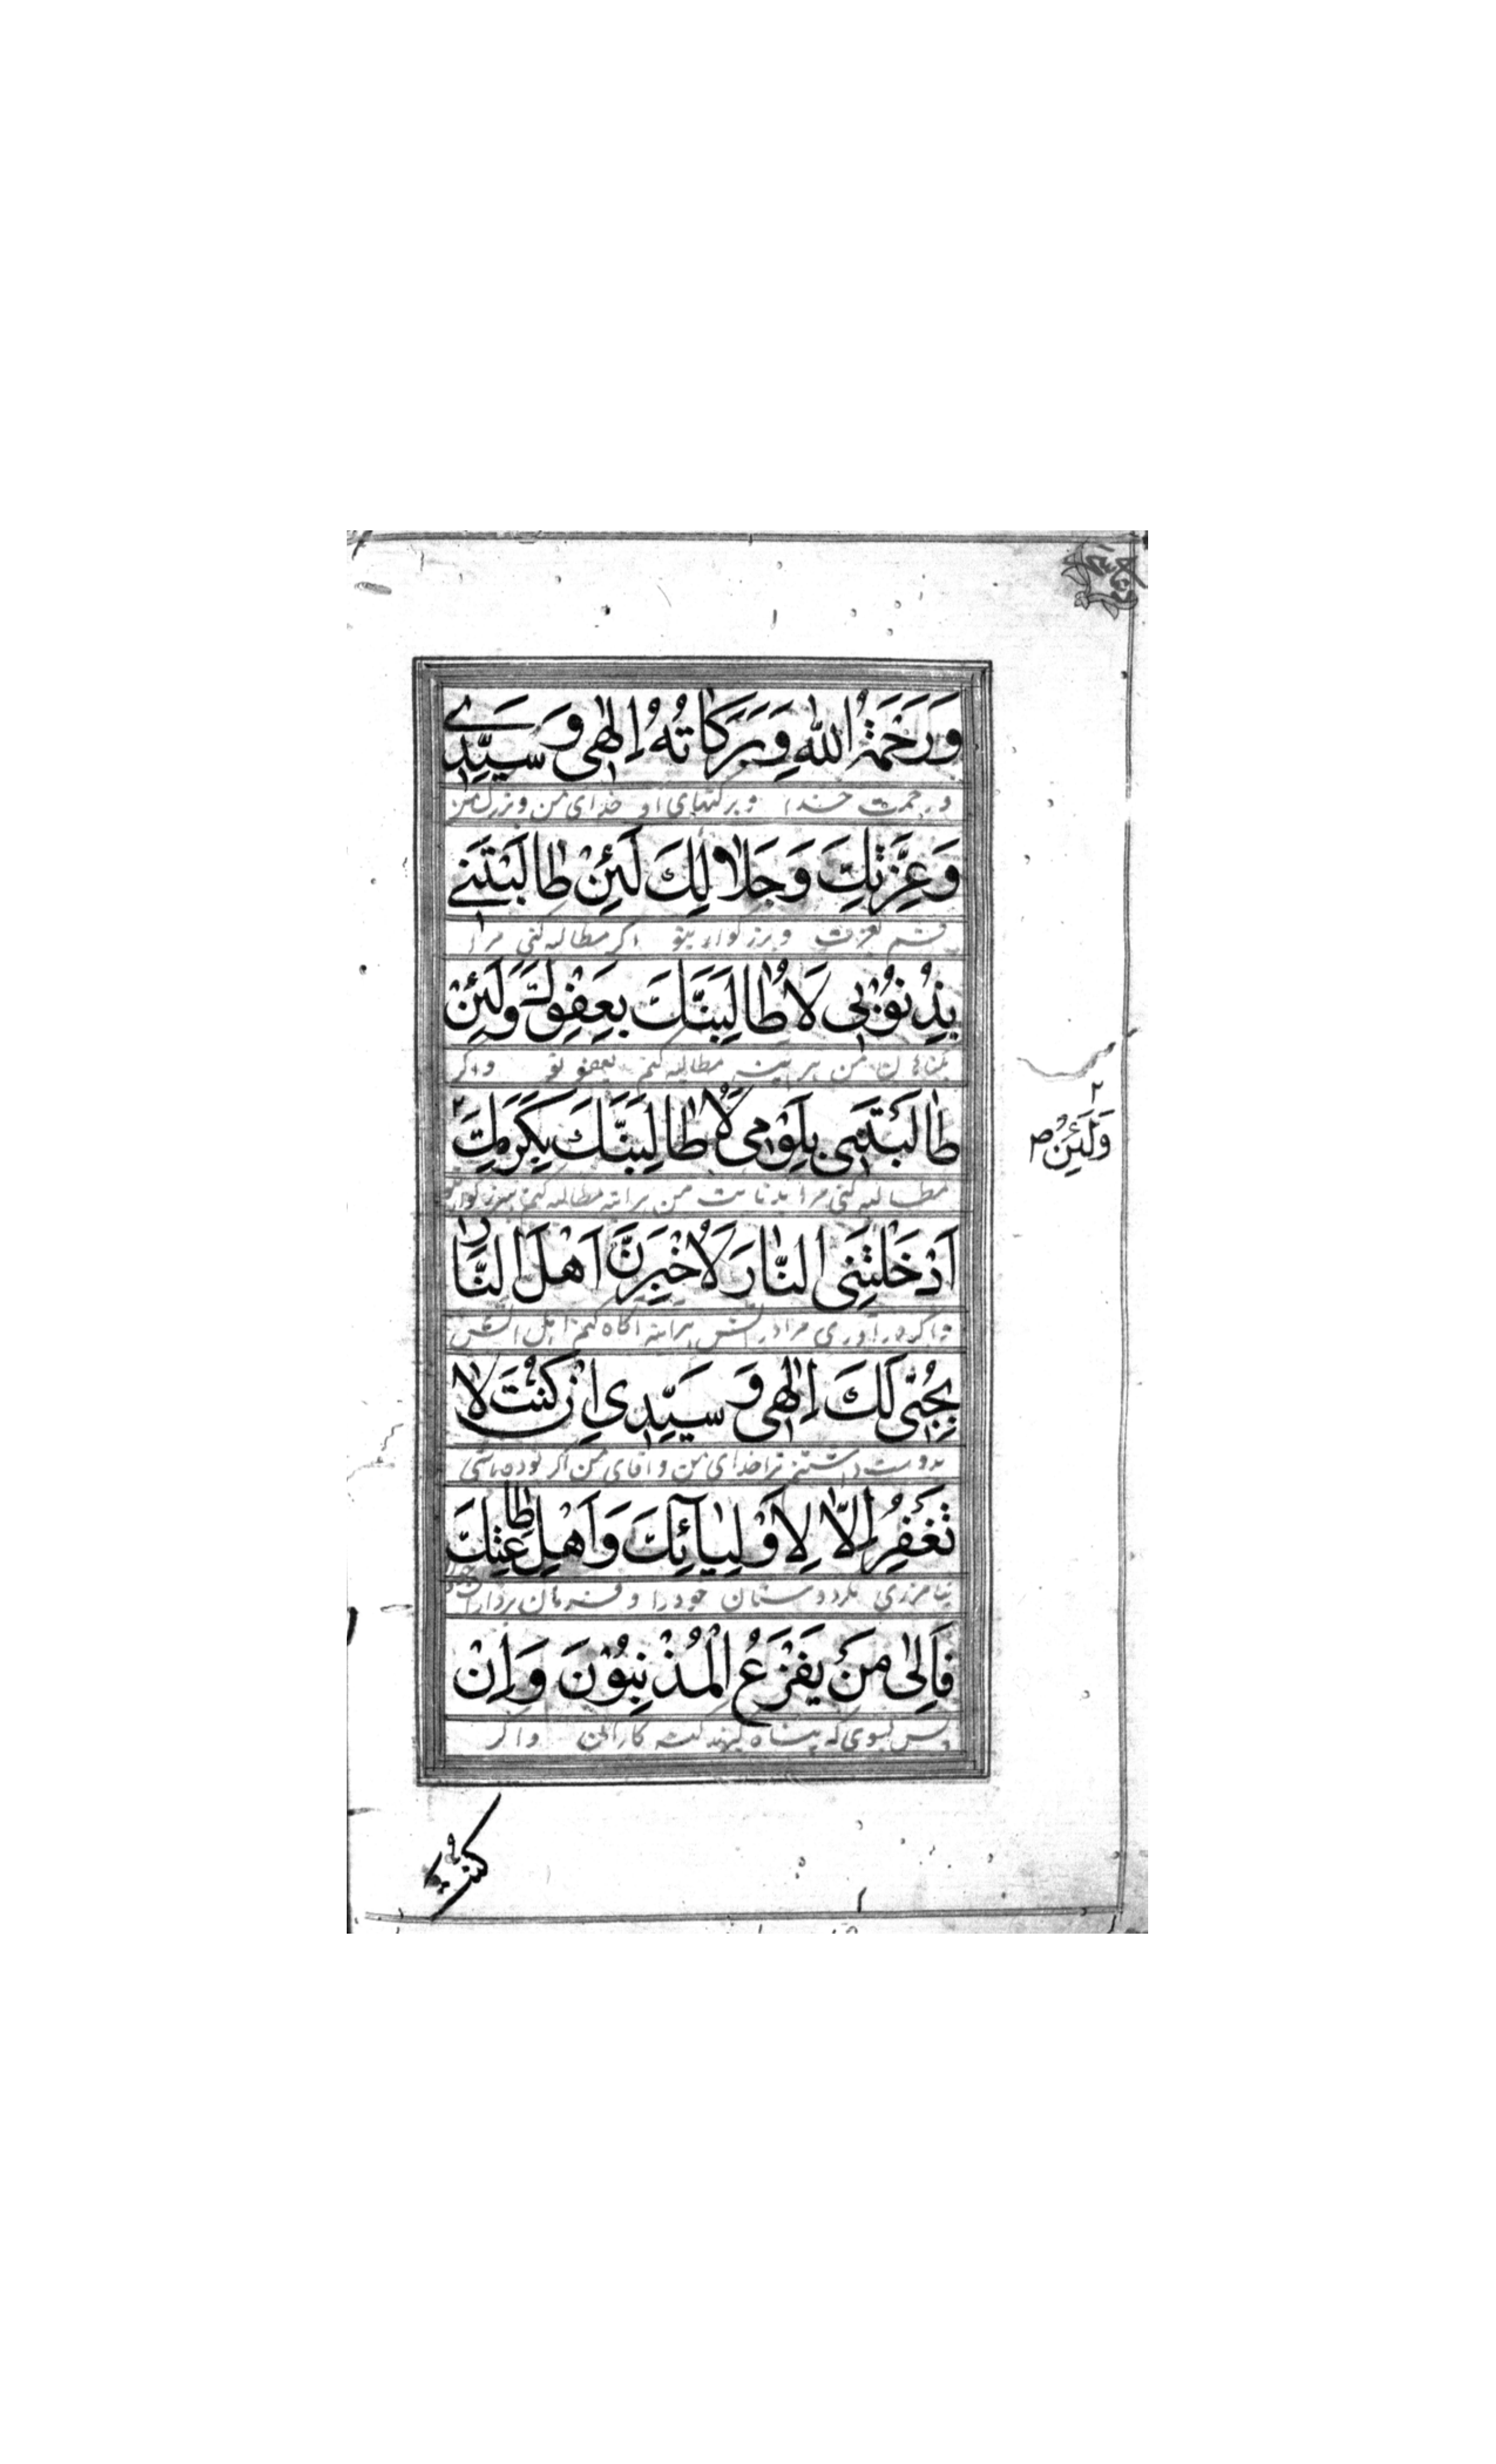 وَرَحْمَةُ اللهِ وَبَرَكَاتُهُ اِلٰهِی وَ سَیِّدِے
و رحمت خدا و برکتهای او خدای من و بزرك من
وَ عِزَّتِكَ وَ جَلَالِكَ لَئِنْ طَالَبْتَنِے
قسم بعزت و بزرکواری تو اکر مطالبه کنی مرا
بِذُنُوْبِی لَاُطَالِبَنَّكَ بِعَفْوِكَ وَلَئِنْ
بکناهان من هر آینه مطالبه کنم بعفو تو و اکر
طَالَبْتَنِی بِلَوْمِی لَاُطَالِبَنَّكَ بِكَرَمِكَ ٢
مطالبه کنی مرا من هر آینه مطالبه کنم
٢ وَلَئِنْ ص
اَدْخَلْتَنِی النَّارَ لَاُخْبِرَنَّ اَهْلَ النَّارِ
و اکر در آوری مرا در آتش هر آینه آکاه کنم اهل آتش
بِحُبِّی لَكَ اِلٰهِی وَ سَیِّدِی اِنْ كُنْتَ لَا
بدوست داشتنم ترا خدای من و آقای من اکر بوده باشی
تَغْفِرُ اِلَّا لِاَوْلِیَآئِكَ وَ اَهْلِ طَاعَتِكَ
نیامرزی مکر دوستان خود را و فرمان برداران خود را
فَاِلٰی مَنْ یَفْزَعُ الْمُذْنِبُوْنَ وَ اِنْ
پس بسوی که پناه کیرند کنه کاران و اکر